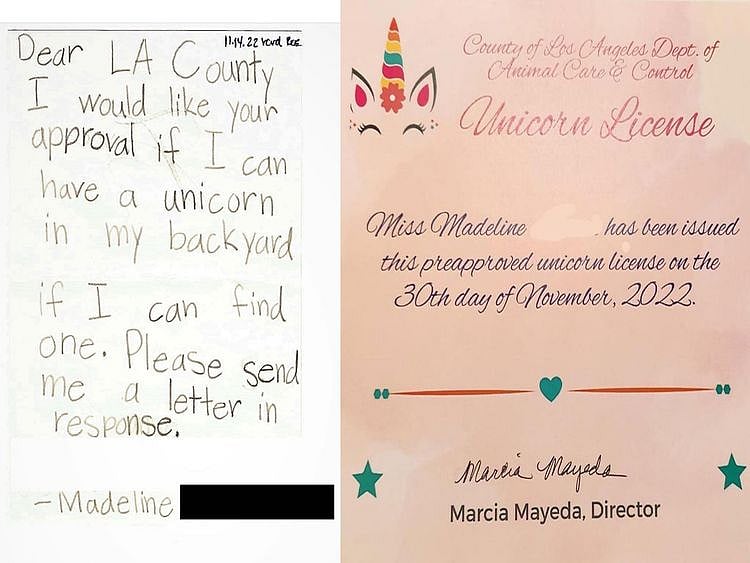 11.14.22
Dear LA County
I would like your
approval if I can
have a unicorn
in my backyard
if I can find
one. Please send
me a letter in
response.
- Madeline
County of Los Angeles Dept. of
Animal Care & Control
Unicorn License
Miss Madeline has been issued
this preapproved unicorn license on the
30th day of November, 2022.
Marcia Mayeda
Marcia Mayeda, Director